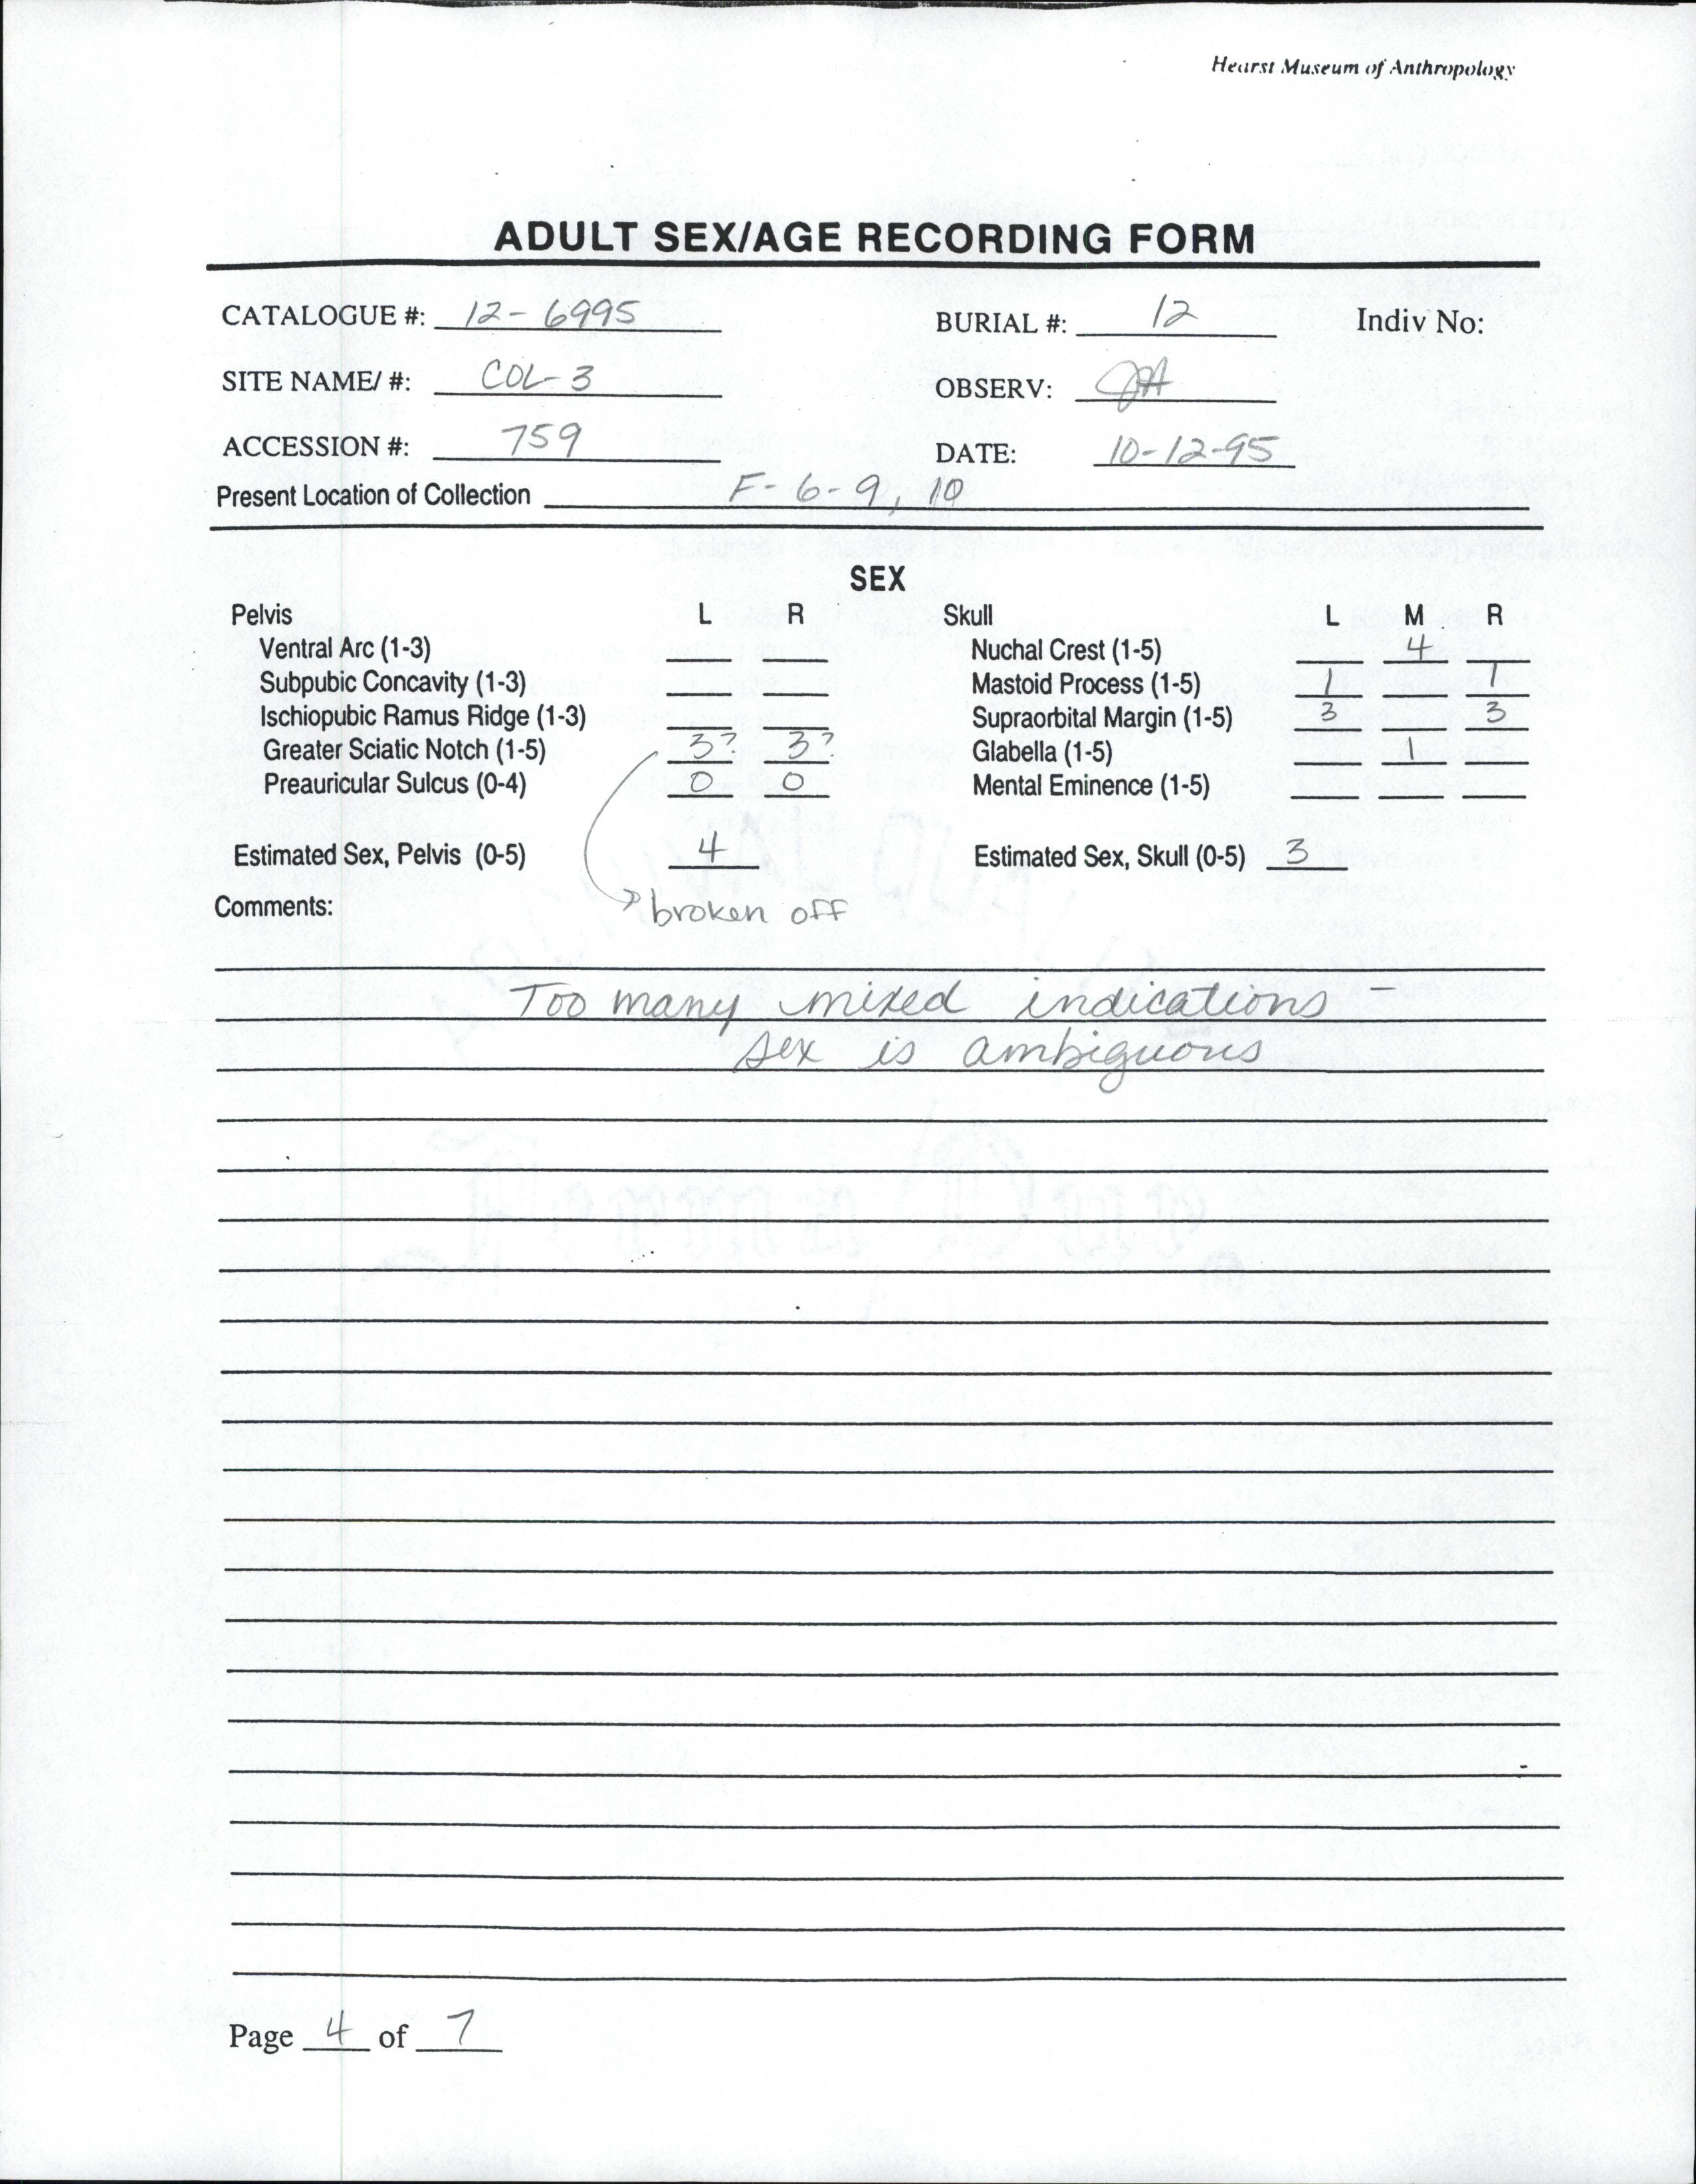 Hearst Museum of Anthropology
ADULT SEX/AGE RECORDING FORM
CATALOGUE #: 12-6995 BURIAL #: 12 Indiv No:
SITE NAME/ #: COL-3 OBSERV: JA
ACCESSION #: 759 DATE: 10-12-95
Present Location of Collection F-6-9, 10
SEX
Pelvis L R Skull L M R
Ventral Arc (1-3) Nuchal Crest (1-5) 4
Subpubic Concavity (1-3) Mastoid Process (1-5) 1 1
Ischiopubic Ramus Ridge (1-3) Supraorbital Margin (1-5) 3 3
Greater Sciatic Notch (1-5) 3? 3? Glabella (1-5) 1
Preauricular Sulcus (0-4) 0 0 Mental Eminence (1-5)
Estimated Sex, Pelvis (0-5) 4 Estimated Sex, Skull (0-5) 3
Comments: broken off
Too many mixed indications -
sex is ambiguous
Page 4 of 7